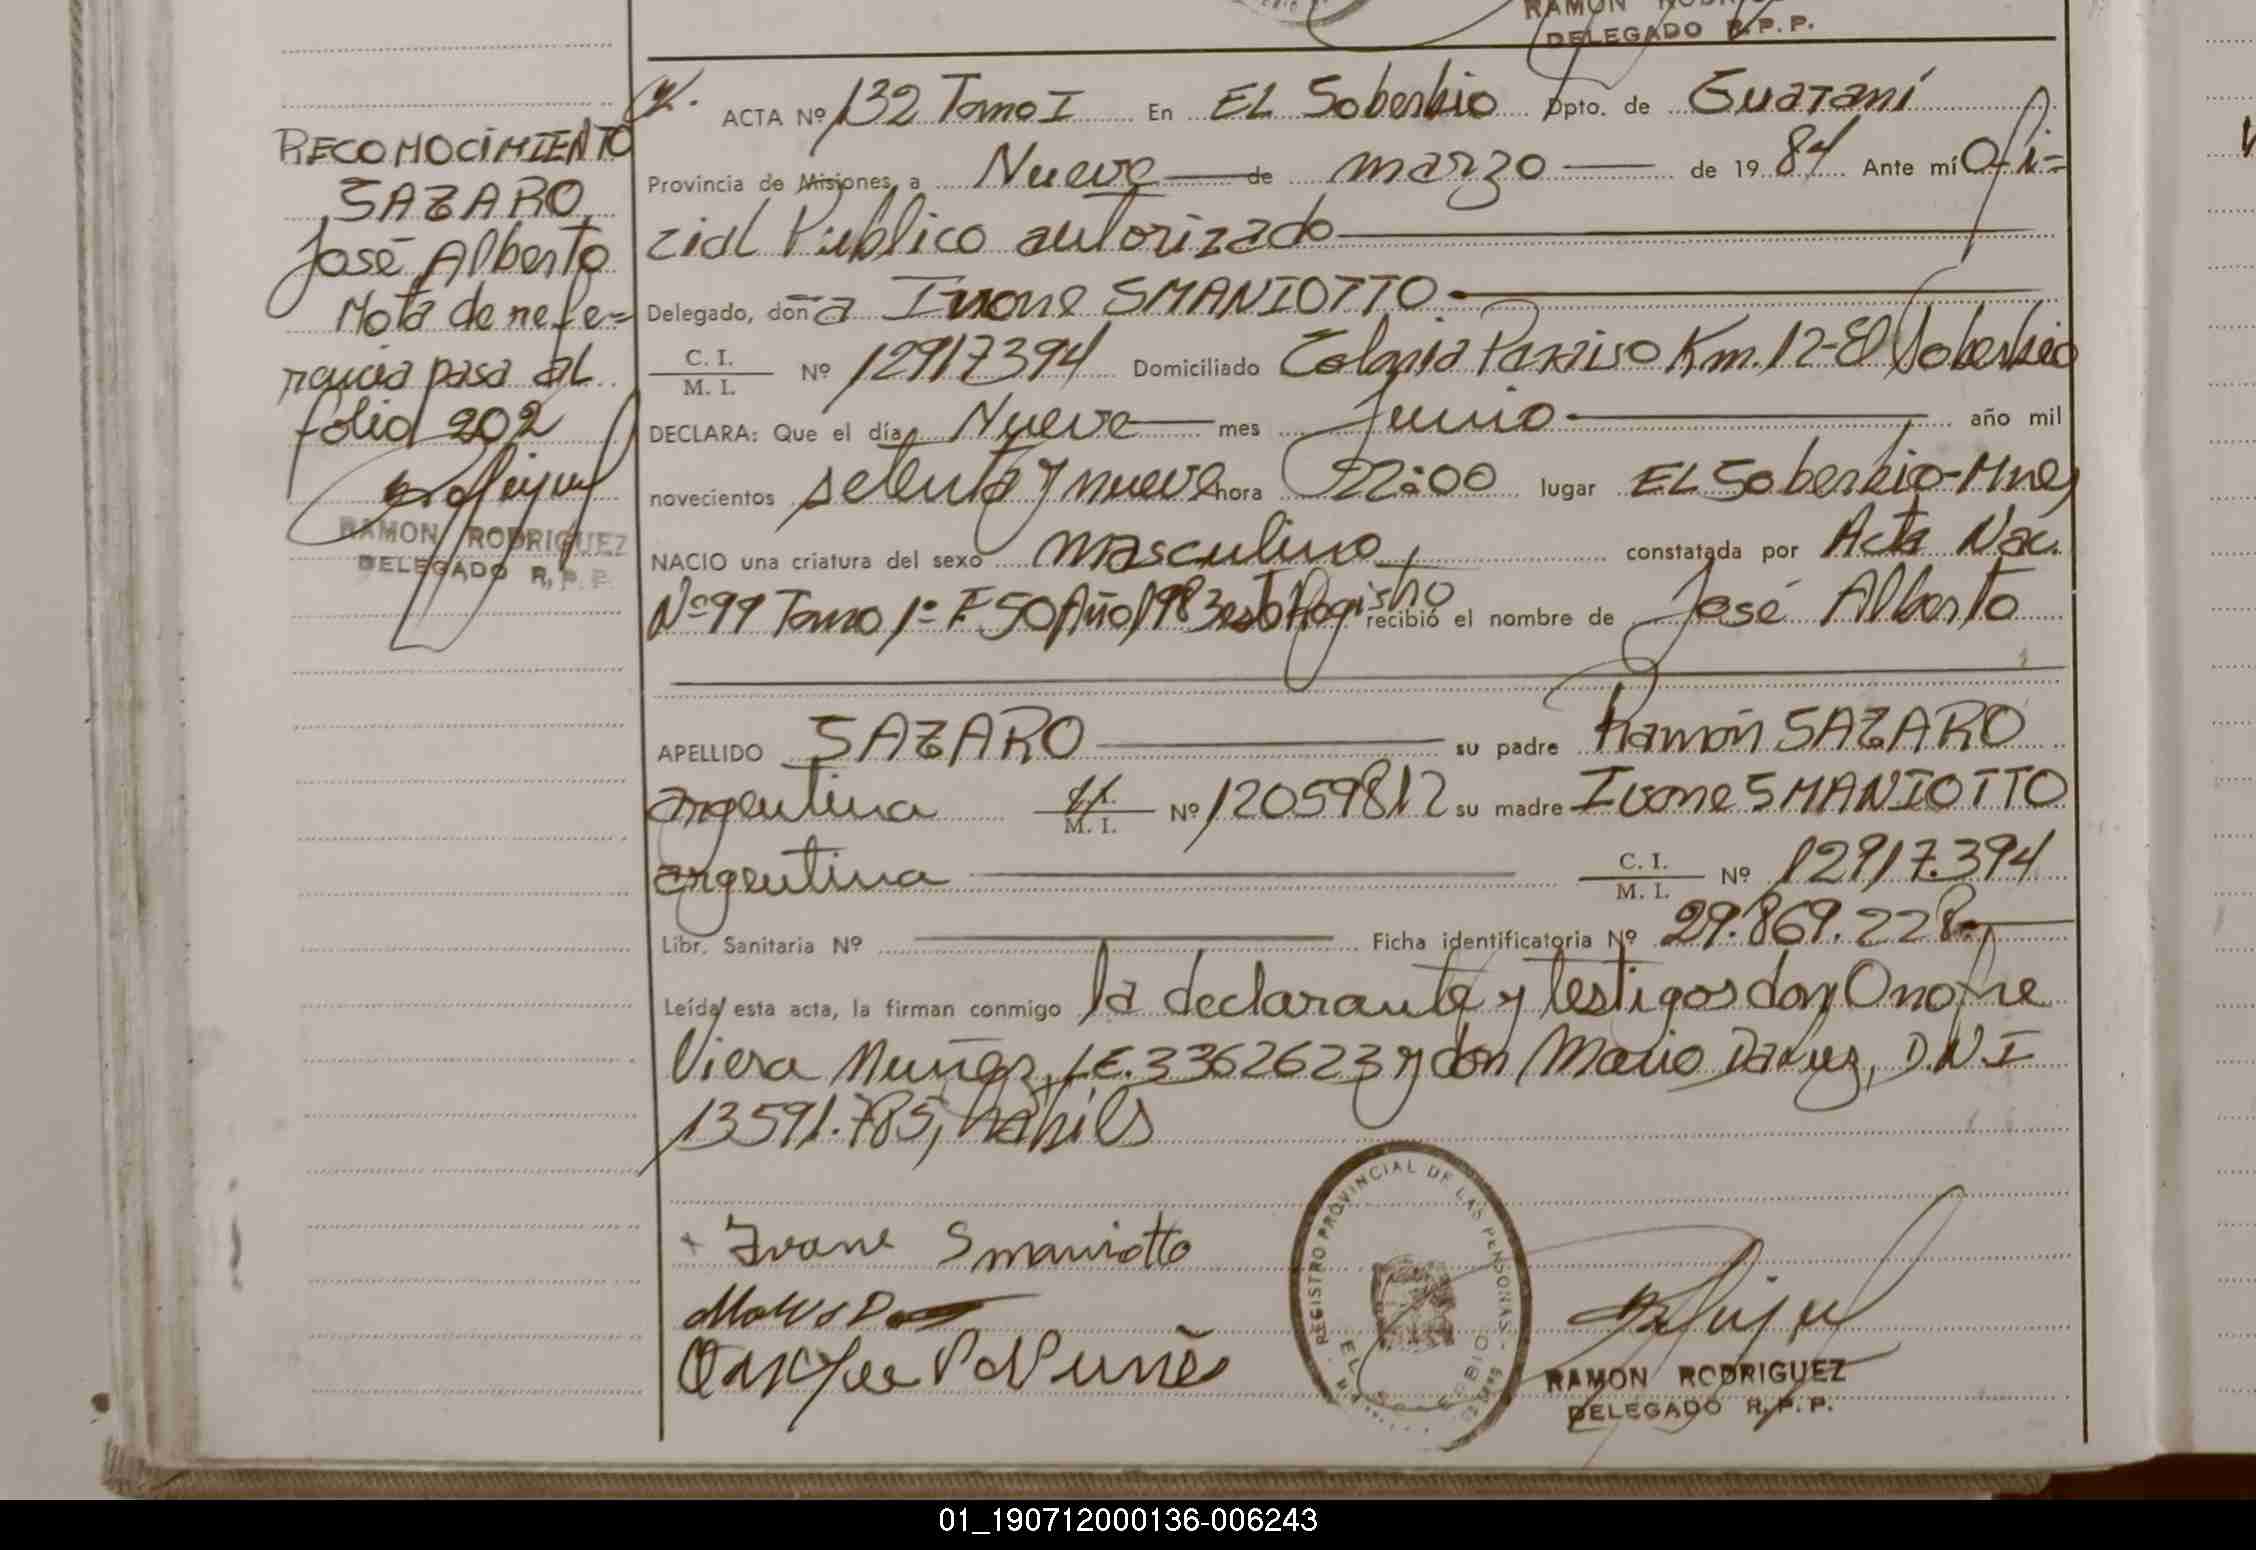 RAMON RODRIGUEZ
DELEGADO R.P.P.
ACTA Nº 132 Tomo I En EL Soberbio Dpto. de Guaraní
Provincia de Misiones, a Nueve de marzo de 19 84 Ante mí Ofi=
cial Público autorizado
Delegado, doña Ivone SMANIOTTO
C. I.
M. I. Nº 12917394 Domiciliado Colonia Paraiso Km. 12-El Soberbio
DECLARA: Que el día Nueve mes Junio año mil
novecientos setenta y nueve hora 22:00 lugar EL Soberbio-Mnes
NACIO una criatura del sexo masculino, constatada por Acta Nac.
Nº 99 Tomo 1º F 50 Año 1983 este Registro recibió el nombre de José Alberto
APELLIDO SAZARO su padre Ramón SAZARO
argentina C.I.
M. I. Nº 12059812 su madre Ivone SMANIOTTO
argentina C. I.
M. I. Nº 12917.394
Libr. Sanitaria Nº Ficha identificatoria Nº 29.869.228.
Leída esta acta, la firman conmigo la declarante y testigos don Onofre
Viera Muñez, LE. 3362623 y don Mario Daluz, D.N.I
13591.785, habils
Ivone Smaniotto
REGISTRO PROVINCIAL DE LAS PERSONAS
EL SOBERBIO
RAMON RODRIGUEZ
DELEGADO R.P.P.
RECONOCIMIENTO
SAZARO
José Alberto
Nota de refe=
rencia pasa al
folio 202
RAMON RODRIGUEZ
DELEGADO R.P.P.
01_190712000136-006243